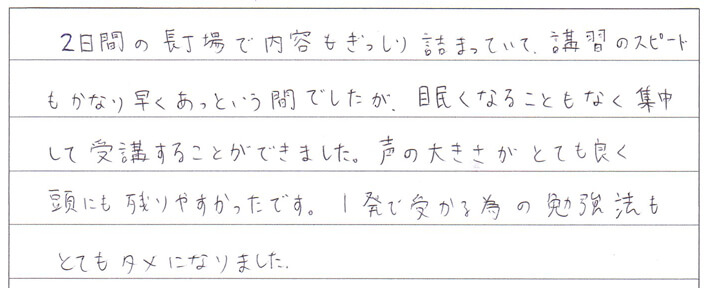 2日間の長丁場で内容もぎっしり詰まっていて、講習のスピード
もかなり早くあっという間でしたが、目民くなることもなく集中
して受講することができました。声の大きさがとても良く
頭にも残りやすかったです。1発で受かる為の勉強法も
とてもタメになりました。